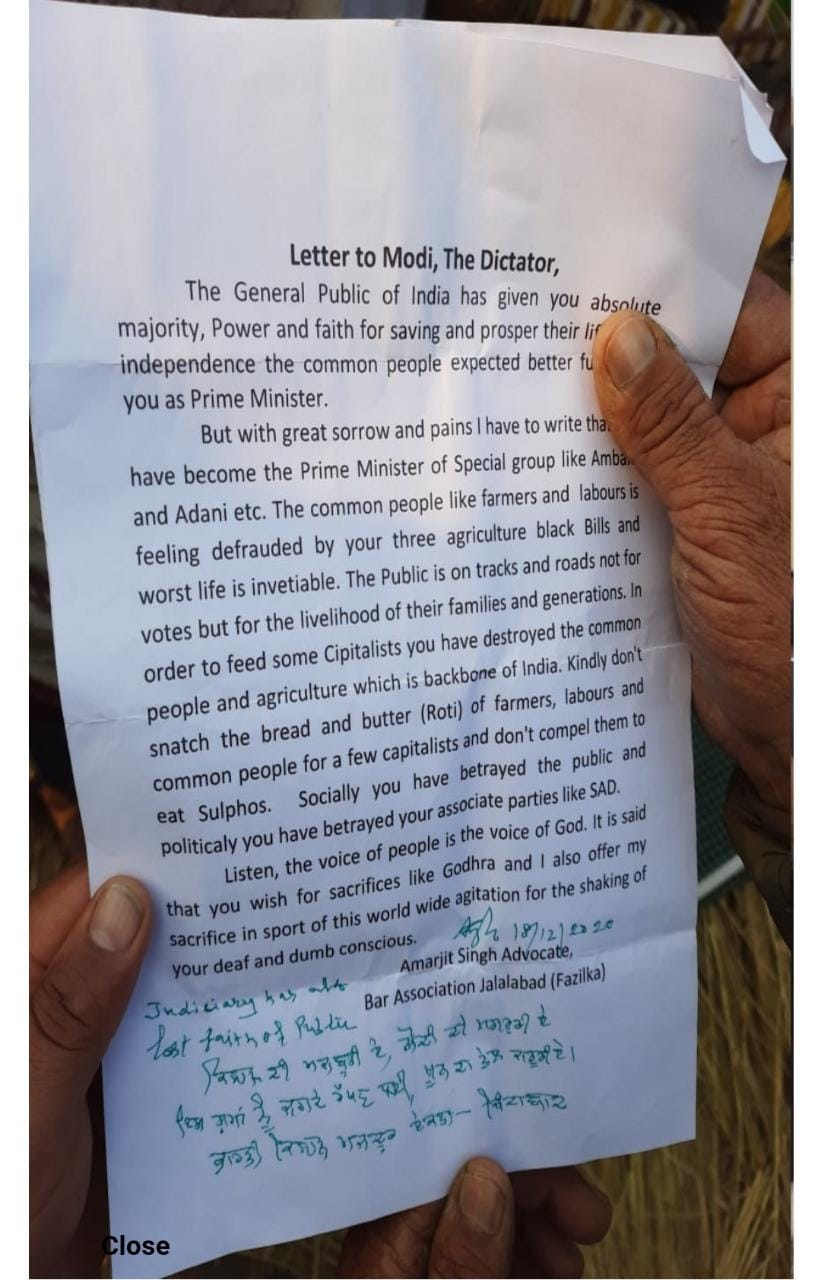 Letter to Modi, The Dictator,
The General Public of India has given you absolute
majority, Power and faith for saving and prosper their
independence the common people expected better
you as Prime Minister.
But with great sorrow and pains I have to write
have become the Prime Minister of Special group like
and Adani etc. The common people like farmers and labours is
feeling defrauded by your three agriculture black Bills and
worst life is invetiable. The Public is on tracks and roads not for
votes but for the livelihood of their families and generations. In
order to feed some Cipitalists you have destroyed the common
people and agriculture which is backbone of India. Kindly don't
snatch the bread and butter (Roti) of farmers, labours and
common people for a few capitalists and don't compel them to
eat Sulphos. Socially you have betrayed the public and
politicaly you have betrayed your associate parties like SAD.
Listen, the voice of people is the voice of God. It is said
that you wish for sacrifices like Godhra and I also offer my
sacrifice in sport of this world wide agitation for the shaking of
your deaf and dumb conscious.
18/12/2020
Amarjit Singh Advocate,
Bar Association Jalalabad (Fazilka)
Judiciary has also
lost faith of Public
ਕਿਸਾਨ ਦੀ ਮਜਬੂਰੀ ਹੈ, ਮੋਦੀ ਦੀ ਮਗਰੂਰੀ ਹੈ
ਨੂੰ ਜਗਦੇ ਰੱਖਣ ਲਈ, ਖੂਨ ਦਾ ਤੇਲ ਜਰੂਰੀ ਹੈ।
ਭਾਰਤੀ ਕਿਸਾਨ ਮਜਦੂਰ ਏਕਤਾ - ਜਿੰਦਾਬਾਦ
Close